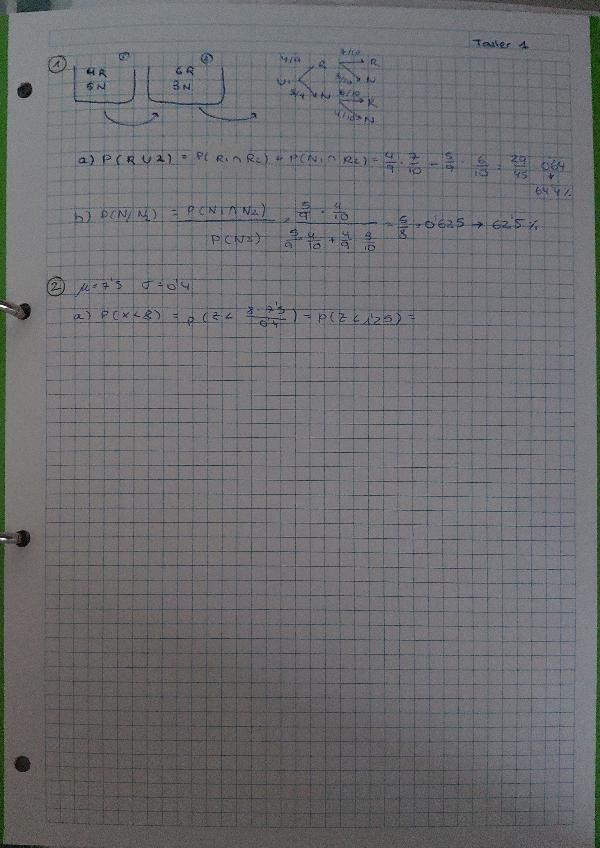 Taller 1
① 4R 5N ① 6R 3N ② 4/9 R 7/10 R
3/10 N
U1 5/9 N 6/10 R
4/10 N
a) P(RU2) = P(R1∩R2) + P(N1∩R2) = 4/9 · 7/10 - 5/9 · 6/10 = 29/45 0'64
64'4%
b) P(N1/N2) = P(N1∩N2) / P(N2) = 5/9 · 4/10 / 5/9 · 4/10 + 4/9 · 3/10 = 5/8 = 0'625 → 62'5%
② μ=7'5 σ=0'4
a) P(X<8) = P(Z < 8-7'5 / 0'4) = P(Z<1'25) =